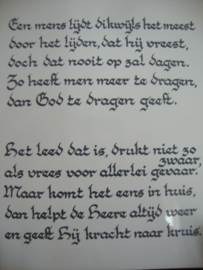 Een mens lijdt dikwijls het meest
door het lijden, dat hij vreest,
doch dat nooit op zal dagen.
Zo heeft men meer te dragen,
dan God te dragen geeft.
Het leed dat is, drukt niet zo
zwaar,
als vrees voor allerlei gevaar.
Maar komt het eens in huis,
dan helpt de Heere altijd weer
en geeft Hij kracht naar kruis.